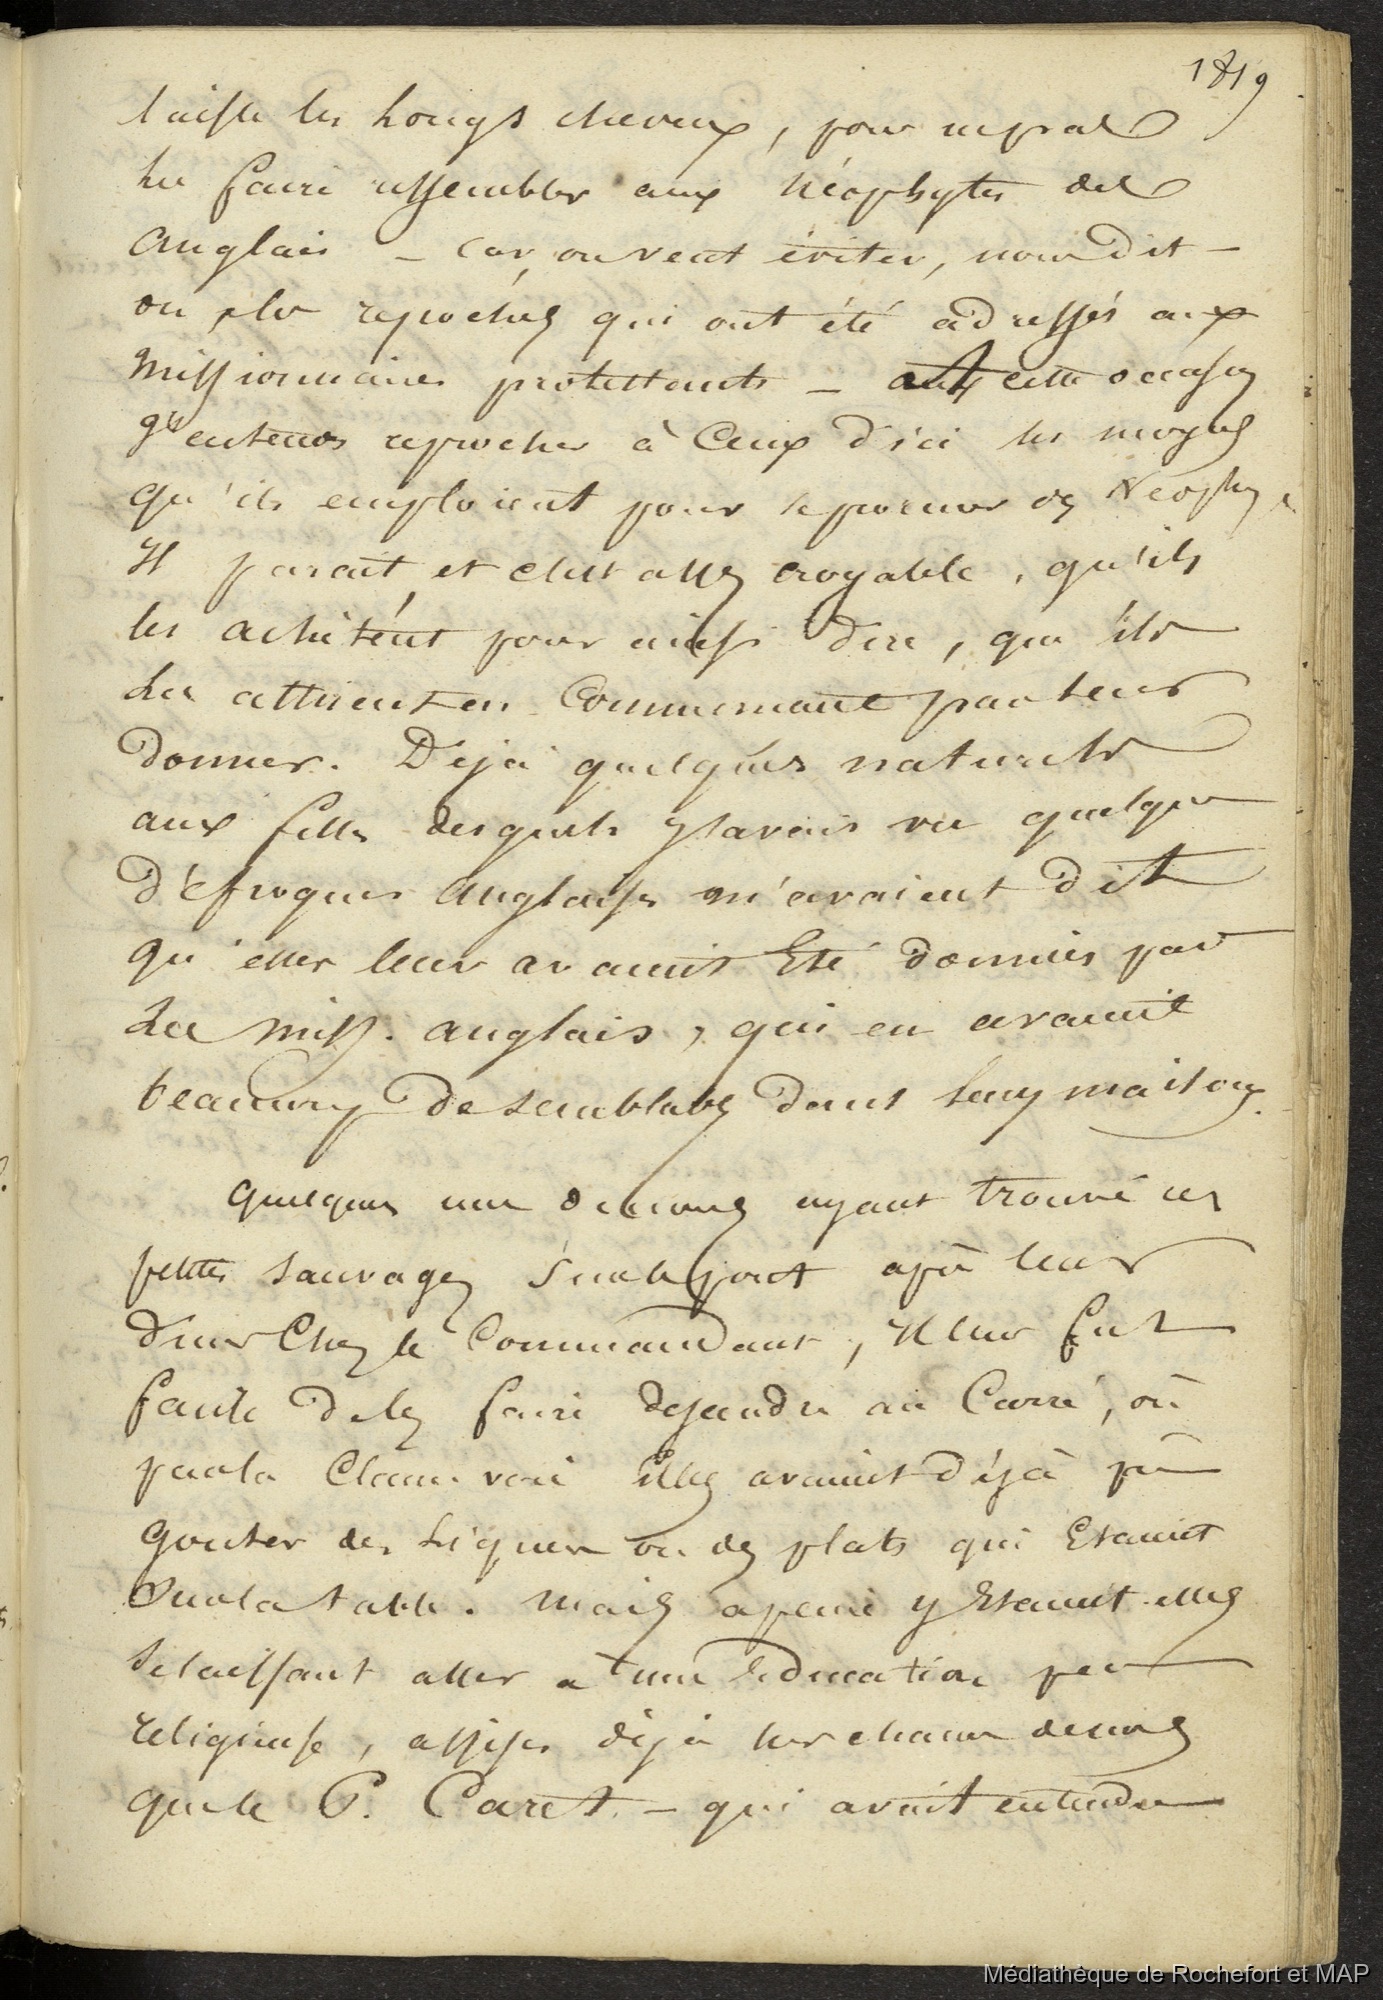 1819
laisse les longs cheveux, pour ne pas
les faire ressembler aux Néophytes des
anglais _ car, on veut éviter, nous dit-
on, les reproches qui ont été adressés aux
missionnaires protestants _ cette occasion
j'entends reprocher à Ceux d'ici les moyens
qu'ils emploient pour se former des Neophy
Il parait, et c'est assez croyable, qu'ils
les achètent pour ainsi dire, qu'ils
les attirent en Commençant par leur
donner. Déjà quelques naturels
aux filles desquels j'avais vu quelque
défroques anglaises m'avaient dit
qu'elles leur avaient Eté données par
Les miss. anglais, qui en avaient
beaucoup de semblables dans leurs maisons.
quelques uns de nous ayant trouvé ces
petites sauvages sur le pont après leur
diner Chez le Commandant, Il leur fut
facile de les faire descendre au Carré, où
par la Claire voie elles avaient déjà pu
gouter des Liqueurs ou des plats qui Etaient
sur la table. Mais a peine y Etaient-elles
se laissant aller a une Education peu
religieuse, assises déjà sur chacun de nous
que le P. Caret _ qui avait entendu
Médiathèque de Rochefort et MAP